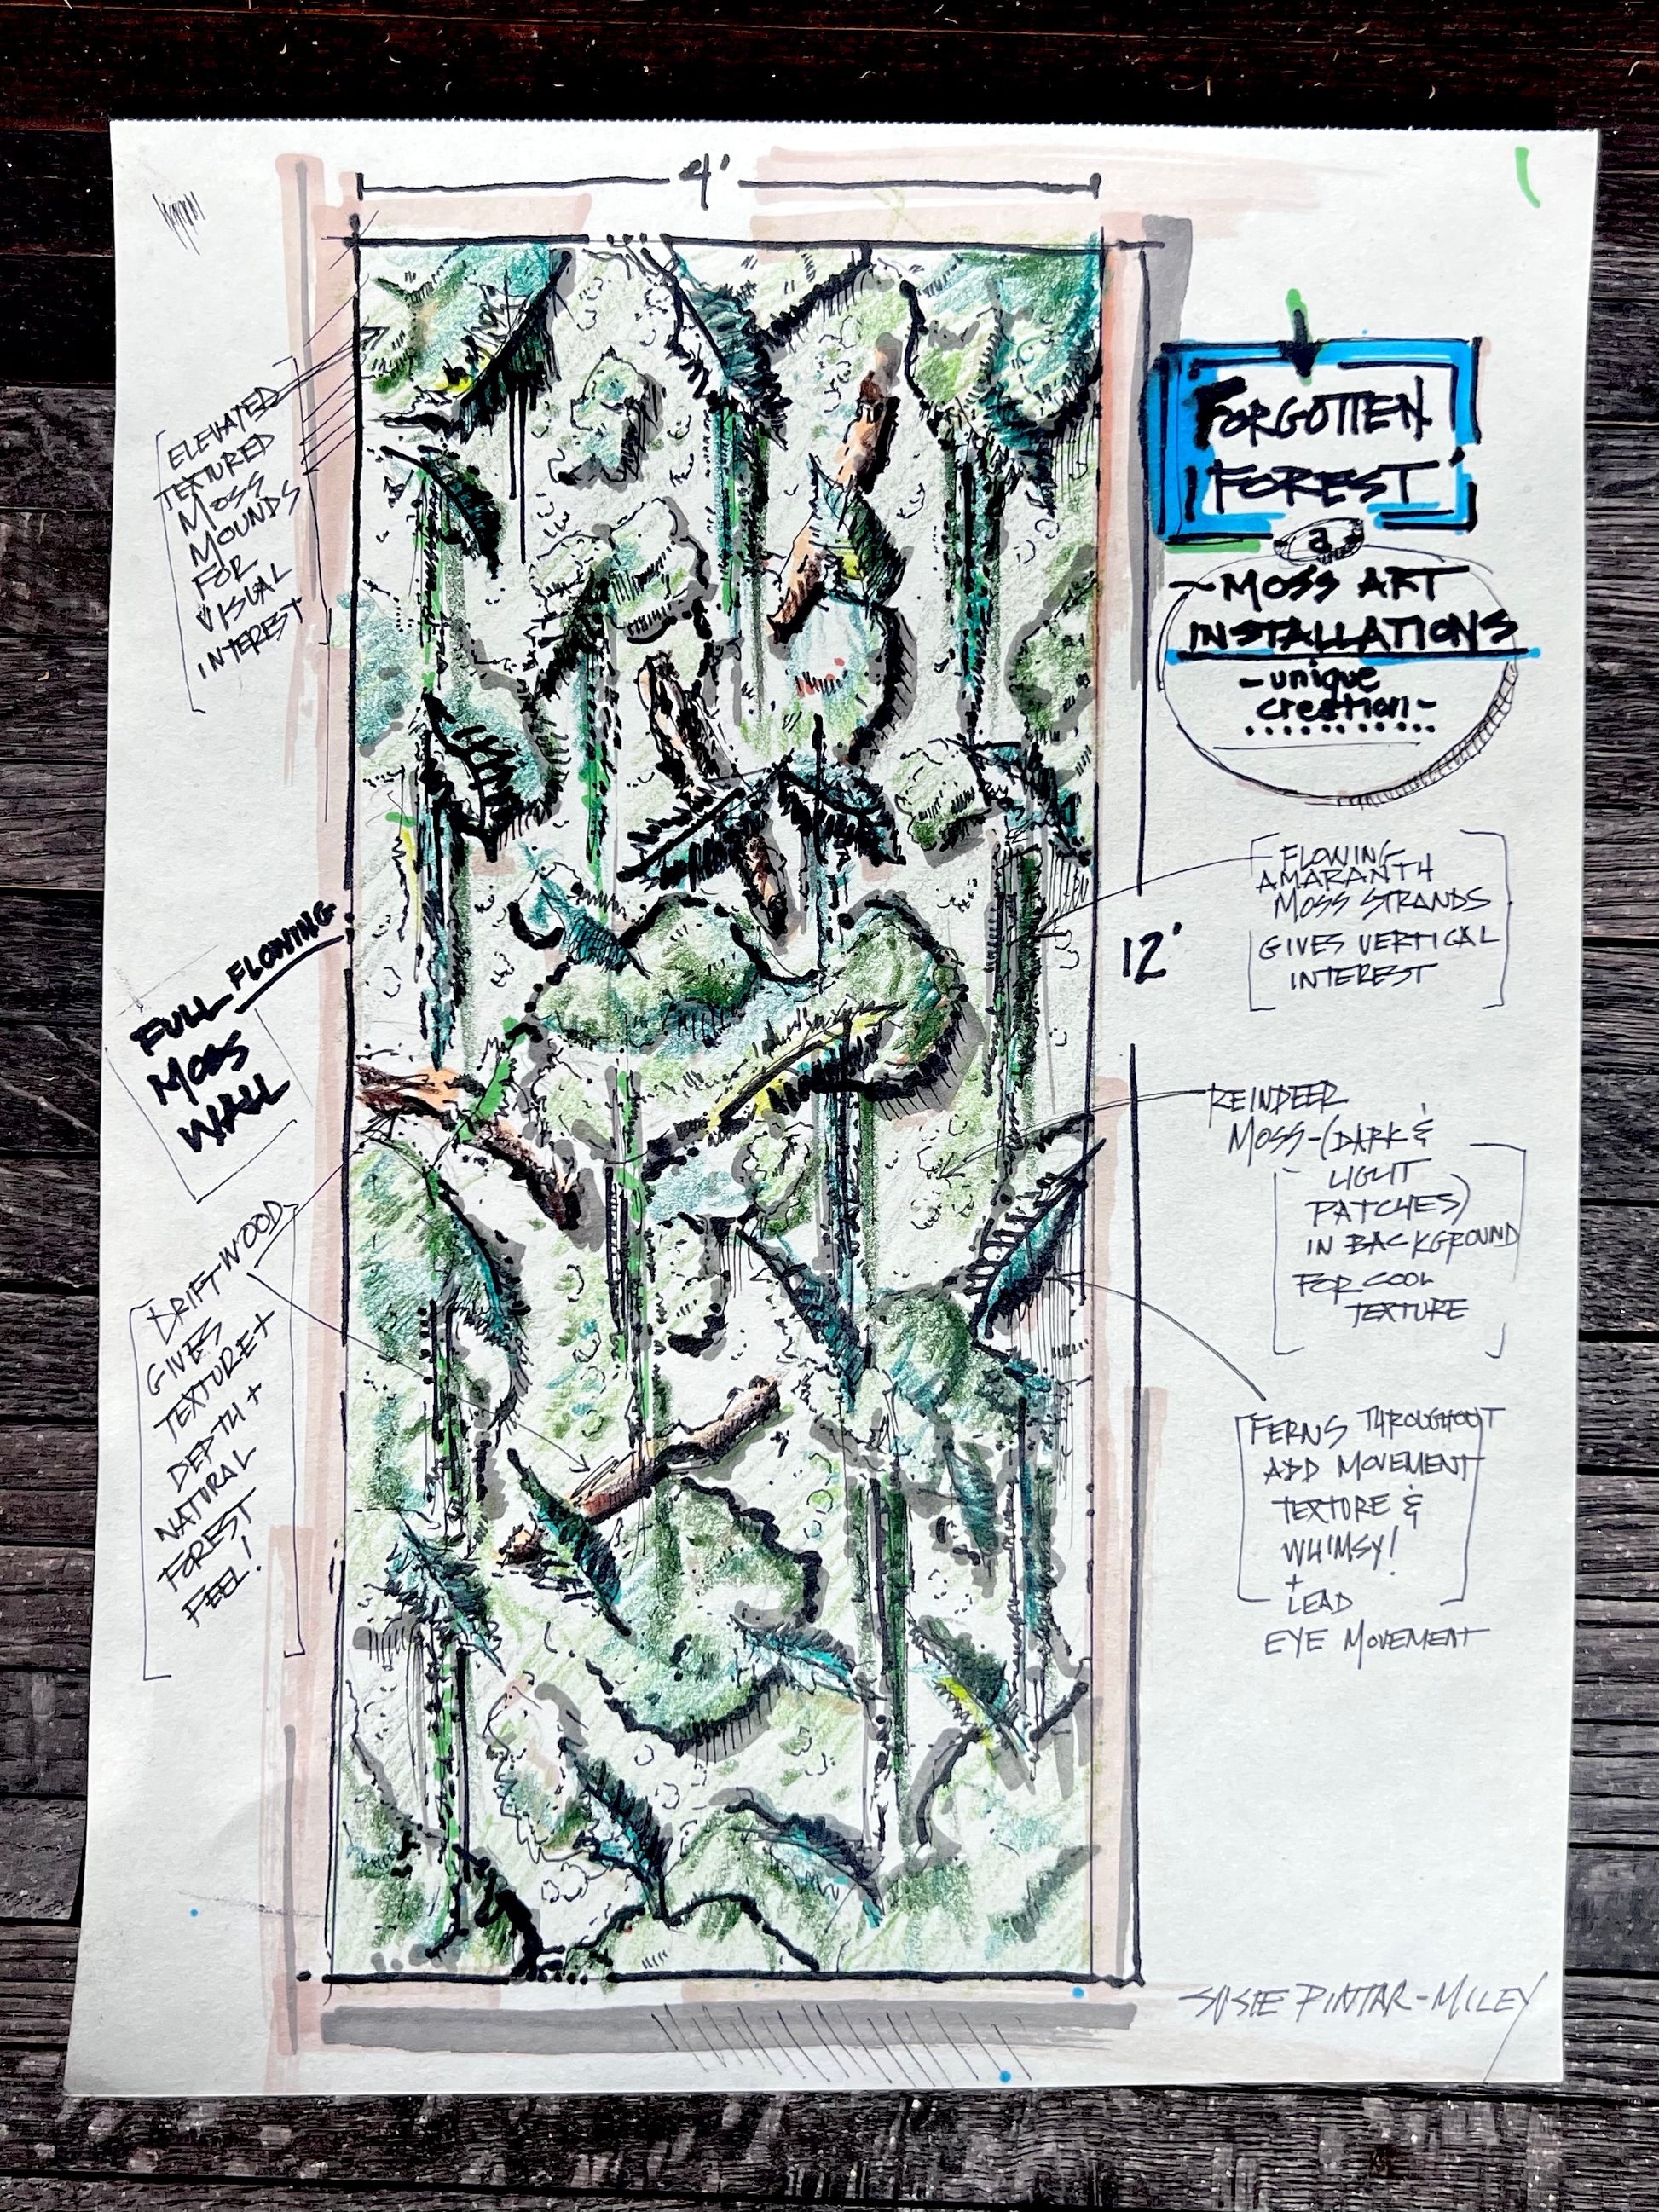 4'
FORGOTTEN
FOREST'
a
- MOSS ART
INSTALLATIONS
- unique
creation -
ELEVATED
TEXTURED
MOSS
MOUNDS
FOR
VISUAL
INTEREST
FLOWING
AMARANTH
MOSS STRANDS
GIVES VERTICAL
INTEREST
12'
FULL FLOWING
MOSS
WALL
REINDEER
MOSS-(DARK &
LIGHT
PATCHES)
IN BACKGROUND
FOR COOL
TEXTURE
DRIFTWOOD
GIVES
TEXTURE +
DEPTH +
NATURAL
FOREST
FEEL!
FERNS THROUGHOUT
ADD MOVEMENT
TEXTURE &
WHIMSY!
+
LEAD
EYE MOVEMENT
SUSIE PINTAR-MILEY